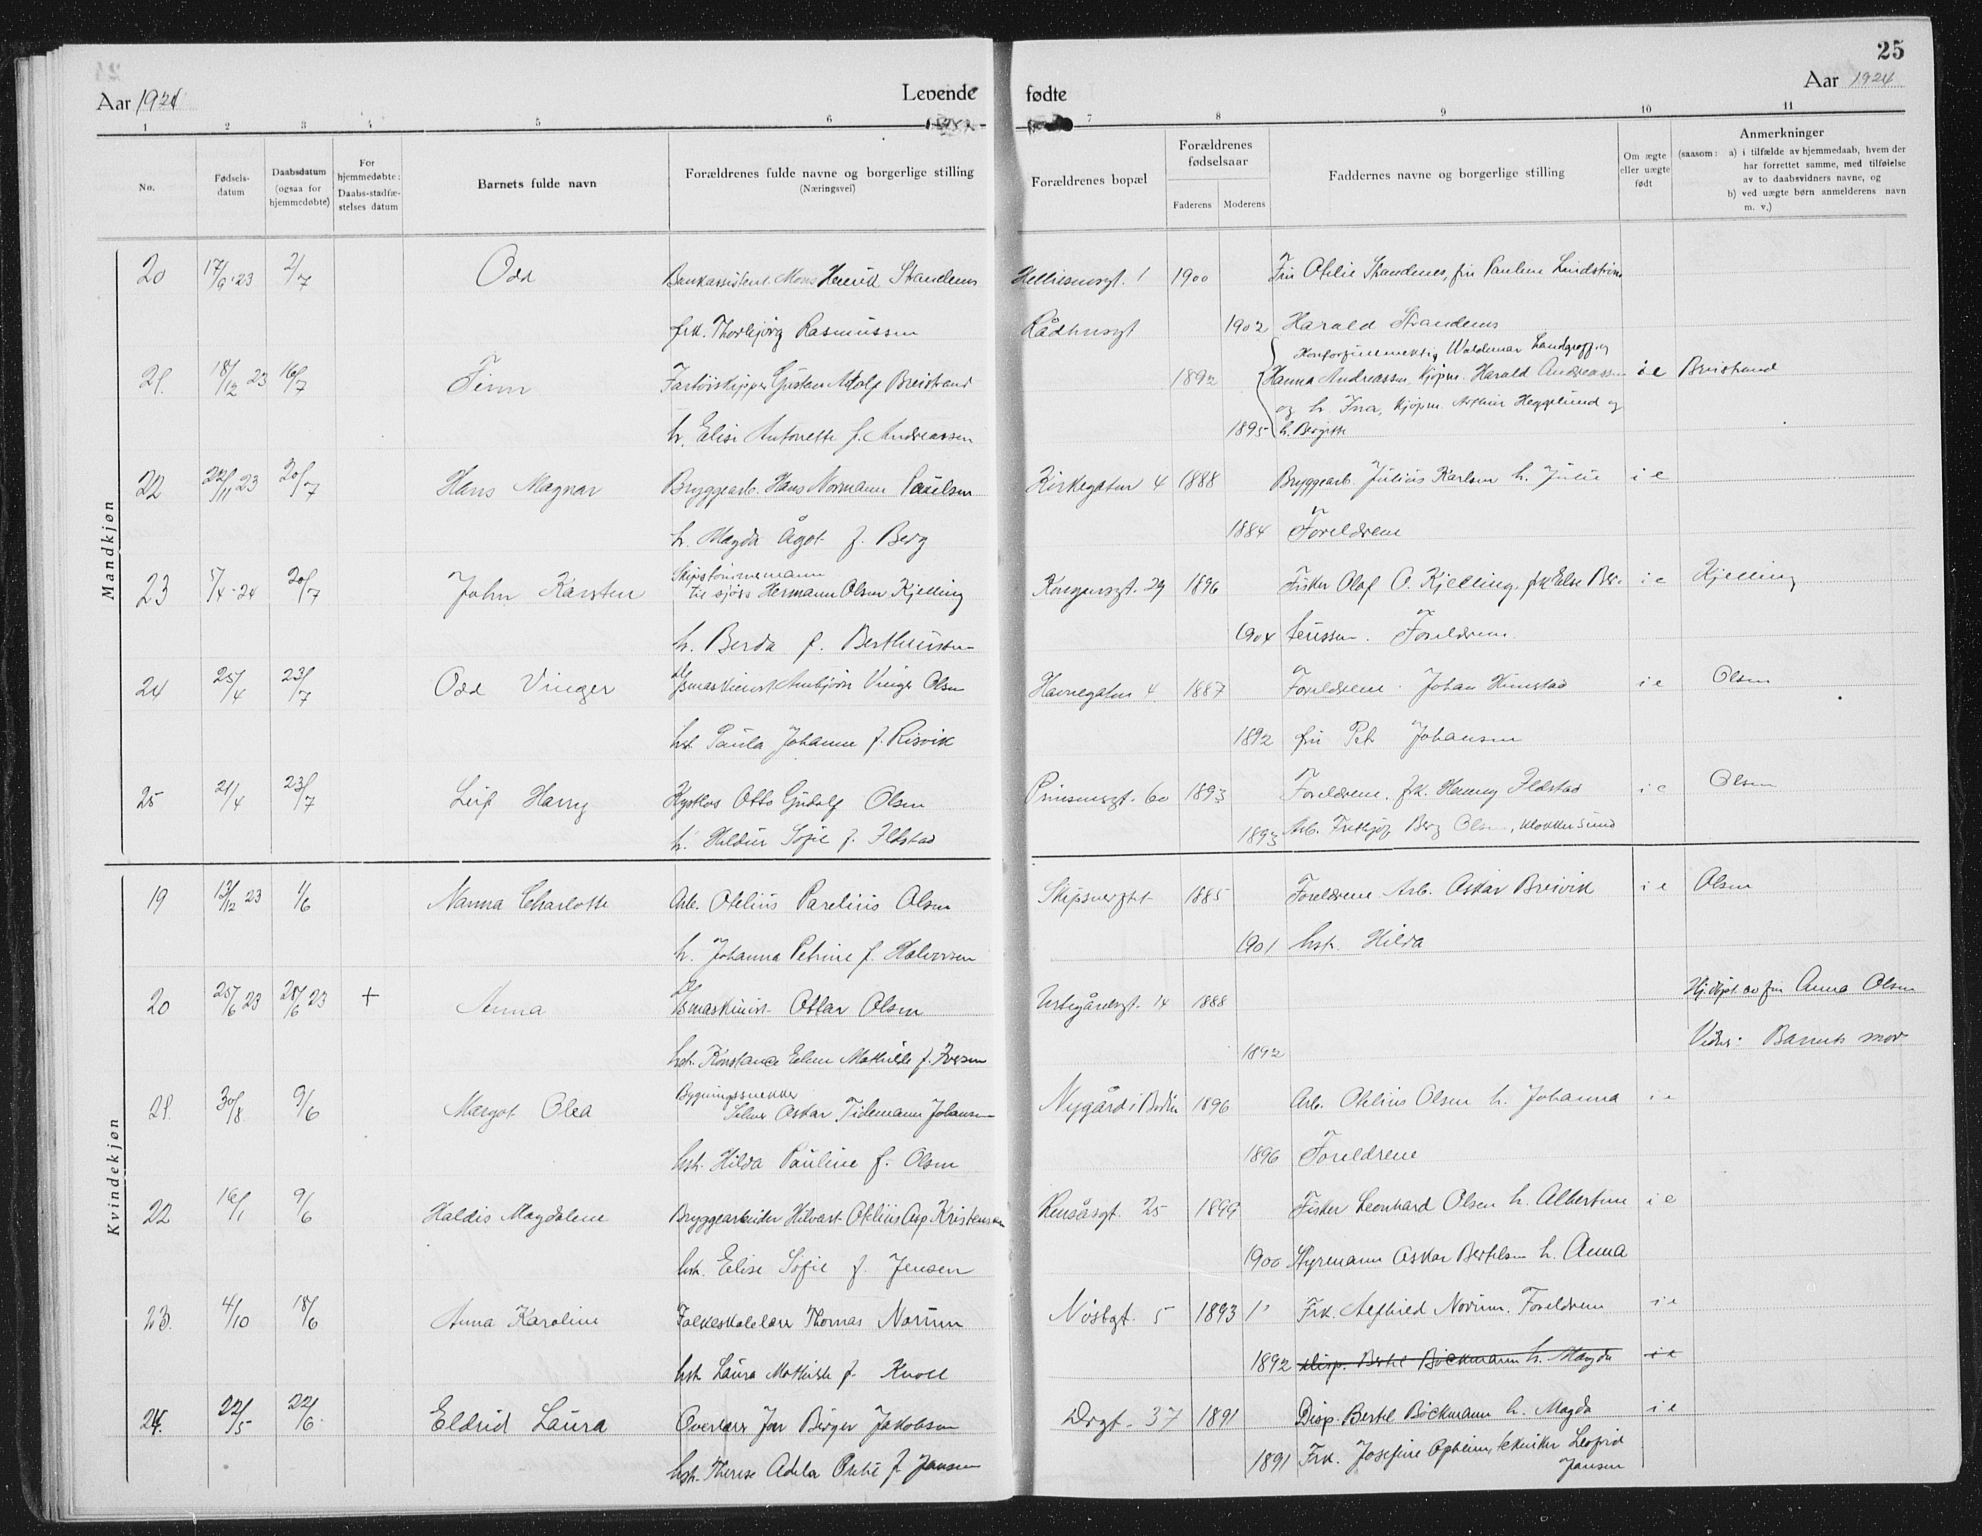 25
Aar 1924 Levende fødte Aar 1924
1 2 3 4 5 6 7 8 9 10 11
No.
Fødsels-
datum
Daabsdatum
(ogsaa for
hjemmedøbte)
For
hjemmedøbte:
Daabs-stadfæ-
stelses datum
Barnets fulde navn
Forældrenes fulde navne og borgerlige stilling
(Næringsvei)
Forældrenes bopæl
Forældrenes
fødselsaar
Faderens Moderens
Faddernes navne og borgerlige stilling
Om ægte
eller uægte
født
Anmerkninger
(saasom: a) i tilfælde av hjemmedaab, hvem der
har forrettet samme, med tilføielse
av to daabsvidners navne, og
b) ved uægte børn anmelderens navn
m. v.)
Mandkjøn
20 17/6 · 23 2/7 Odd Bankassistent Mons Henrik Strandenes 1 1900 Fru Otelie Strandenes, fru Pauline Lindstrøm
frk. Thorbjørg Rasmussen Rådhusgt 1902 Harald Strandenes
Waldemar Landgraff og
21. 18/12 23 16/7 Finn Gustav Adolf Breistrand 1892 Hanna Andreassen, kjøpm. Harald Andreassen i e Breistrand
og h. Ina, kjøpm. Arthur Heggelund og
h. Elise Antonette f. Andreassen 1895 h. Bergitte
22 22/11 23 20/7 Hans Magnar Bryggearb. Hans Normann Paulsen Kirkegaten 4 1888 Bryggearb. Julius Karlsen h. Julie i e
h. Magda Ågot f. Berg 1884 Foreldrene
Skipstømmermann
23 5/4 - 24 20/7 John Karsten til sjøss Hermann Olsen Kjelling Kongensgt. 29 1896 Fisker Olaf O. Kjelling, frk Else Ber- i e Kjelling
h. Berda f. Bertheussen 1904 teussen. Foreldrene
24 25/4 23/7 Odd Vinger Arnbjørn Vinger Olsen Havnegaten 4 1887 Foreldrene. Johan Himstad i e Olsen
hst. Paula Johanne f. Risvik 1892 fru Johansen
25 21/4 23/7 Leif Harry Otto Olsen Prinsensgt. 60 1893 Foreldrene, frk. Ildstad i e Olsen
h. Hildur Sofie f. Ildstad 1893 Arb. Berg Olsen, Klokkersund
Kvindekjøn
19 13/12 23 1/6 Nanna Charlotte Arb. Otelius Parelius Olsen 1885 Foreldrene Arb. Oskar Breivik i e Olsen
h. Johanna Petrine f. Halvorsen 1901 hst. Hilda
20 25/6 23 28/6 23 + Anna Ottar Olsen 14 1888 Hj.døpt av fru Anna Olsen
hst. Konstance Mathilde f. Iversen 1892 Vidne: Barnets mor
Bygningssnekker
21. 30/8 9/6 Margot Olea Selmer Oskar Tidemann Johansen Nygård i Bodin 1896 Arb. Otelius Olsen h. Johanna i e
hst. Hilda Pauline f. Olsen 1896 Foreldrene
22 16/1 9/6 Haldis Magdalene Bryggearbeider Hilvart Otelius Asp Kristensen Rensåsgt. 25 1899 Fisker Leonhard Olsen h. Albertine i e
hst. Elise Sofie f. Jensen 1900 Styrmann Oskar Bertelsen h. Anna
23. 4/10 18/6 Anna Karoline Folkeskolelærer Thomas Norum 5 1893 Frk. Alfhild Norum. Foreldrene i e
hst. Laura Mathilde f. Knoll 1892 Disp. Bertel Bøckmann h. Magda i e
24. 22/5 22/6 Eldrid Laura Overlærer Jon Birger Jakobsen Drgt. 37 1891 Disp. Bertel Bøckmann h. Magda i e
hst. Therese Adela f. Jansen 1891 Frk. Josefine Opheim, tekniker Leopold
Jansen